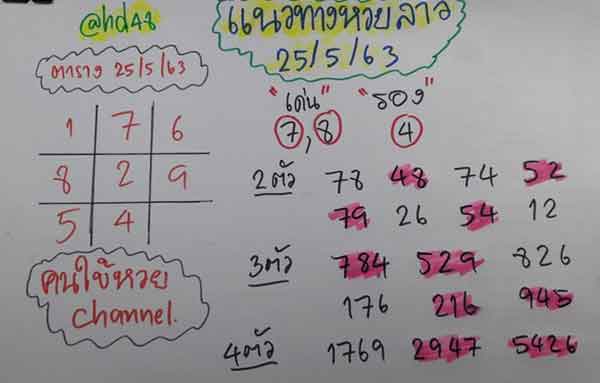 @hd48
แนวทางหวยลาว
25/5/63
ตาราง 25/5/63
"เด่น" "รอง"
7, 8 4
1 7 6
8 2 9
5 4
2ตัว 78 48 74 52
79 26 54 12
3ตัว 784 529 826
176 216 945
4ตัว 1769 2947 5426
คนใบ้หวย
Channel.